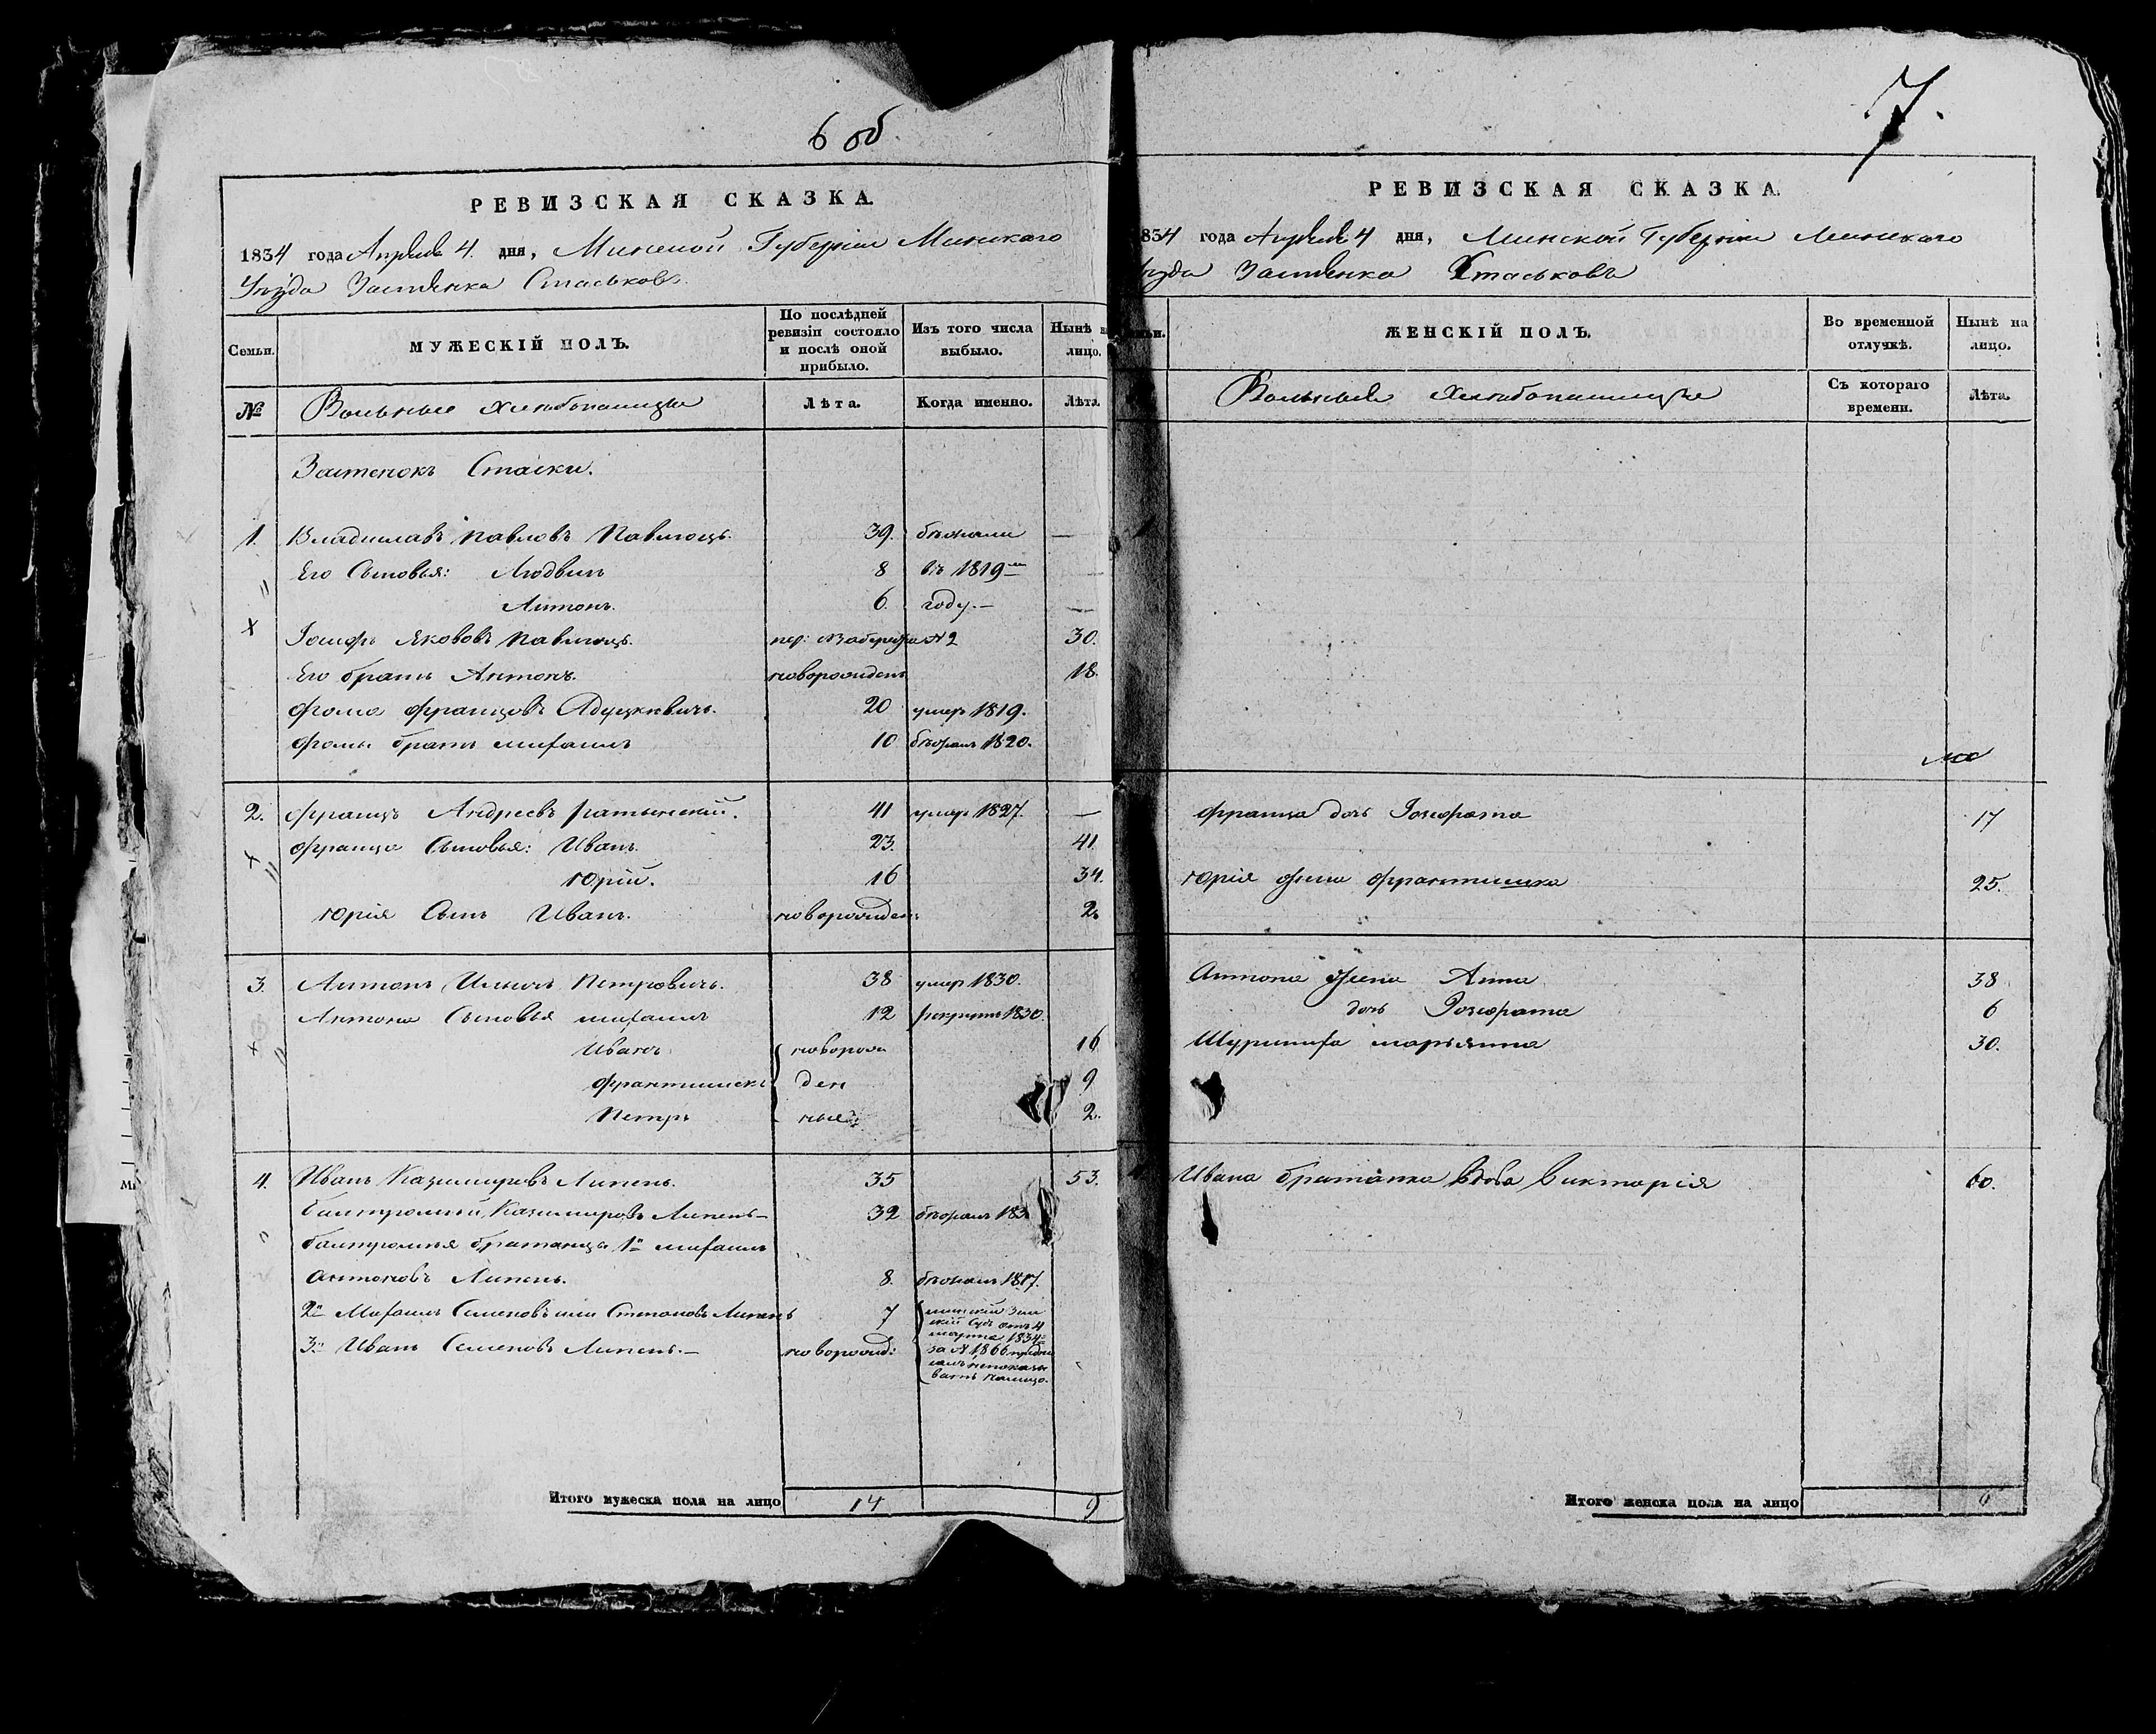 6 об
РЕВИЗСКАЯ СКАЗКА.
1834 года Апреля 4. дня, Минской Губерніи Минскаго
Уѣзда Застенка Стаськовъ.
Семьи.
МУЖЕСКІЙ ПОЛЪ.
По послѣдней ревизіи состояло и послѣ оной прибыло.
Изъ того числа выбыло.
Нынѣ на лицо.
№
Вольные хлебопашцы
Лѣта.
Когда именно.
Лѣта.
Застенокъ Стаски.
1. Владиславъ Павловъ Павлюць. 39. бежали —
Его Сыновья: Людвигъ 8 въ 1819м —
Антонъ. 6. году.— —
Іосифъ Яковъ Павлюць. пер: №2 30.
Его братъ Антонъ. новорожден 18.
Фома Францовъ Адуцкевичъ. 20 умеръ 1819.
Фомы братъ Михаилъ 10 бежалъ 1820.
2. Францъ Андреевъ Ратынский. 41 умеръ 1827. —
Франца Сыновья: Иванъ. 23. 41.
Юрій. 16 34.
Юрія Сынъ Иванъ. новорожден: 2.
3. Антонъ Ильичъ Петровичъ. 38 умеръ 1830.
Антона Сыновья Михаилъ 12 рекрутъ 1830.
Иванъ новорож 16
Францишекъ ден 9
Петръ ные 2.
4. Иванъ Казимировъ Липень. 35 53.
Балтромей Казимировъ Липень— 32 бежалъ 183
Балтромея братанцы 1й Михаилъ
Антоновъ Липень. 8. бежалъ 1817.
2й Михаилъ Семеновъ или Степановъ Липень 7 минский Зем
ский Судъ отъ 4
марта 1834го
3й Иванъ Семеновъ Липень.— новорожд: за № 1866
непоказы
вать налицо.
Итого мужеска пола на лицо 14 9
7.
РЕВИЗСКАЯ СКАЗКА.
834 года Апреля 4 дня, Минской Губерніи Минскаго
ѣзда Застенка Стаськовъ
ЖЕНСКІЙ ПОЛЪ.
Во временной отлучкѣ.
Нынѣ на лицо.
Вольные Хлебопашцы
Съ котораго времени.
Лѣта.
1
Франца дочь Іозефата 17
Юрія жена Францишка 25.
Антона жена Анна 38
дочь Іозефата 6
Марьянна 30.
Ивана братанка Вдова Викторія 60.
Итого женска пола на лицо 6